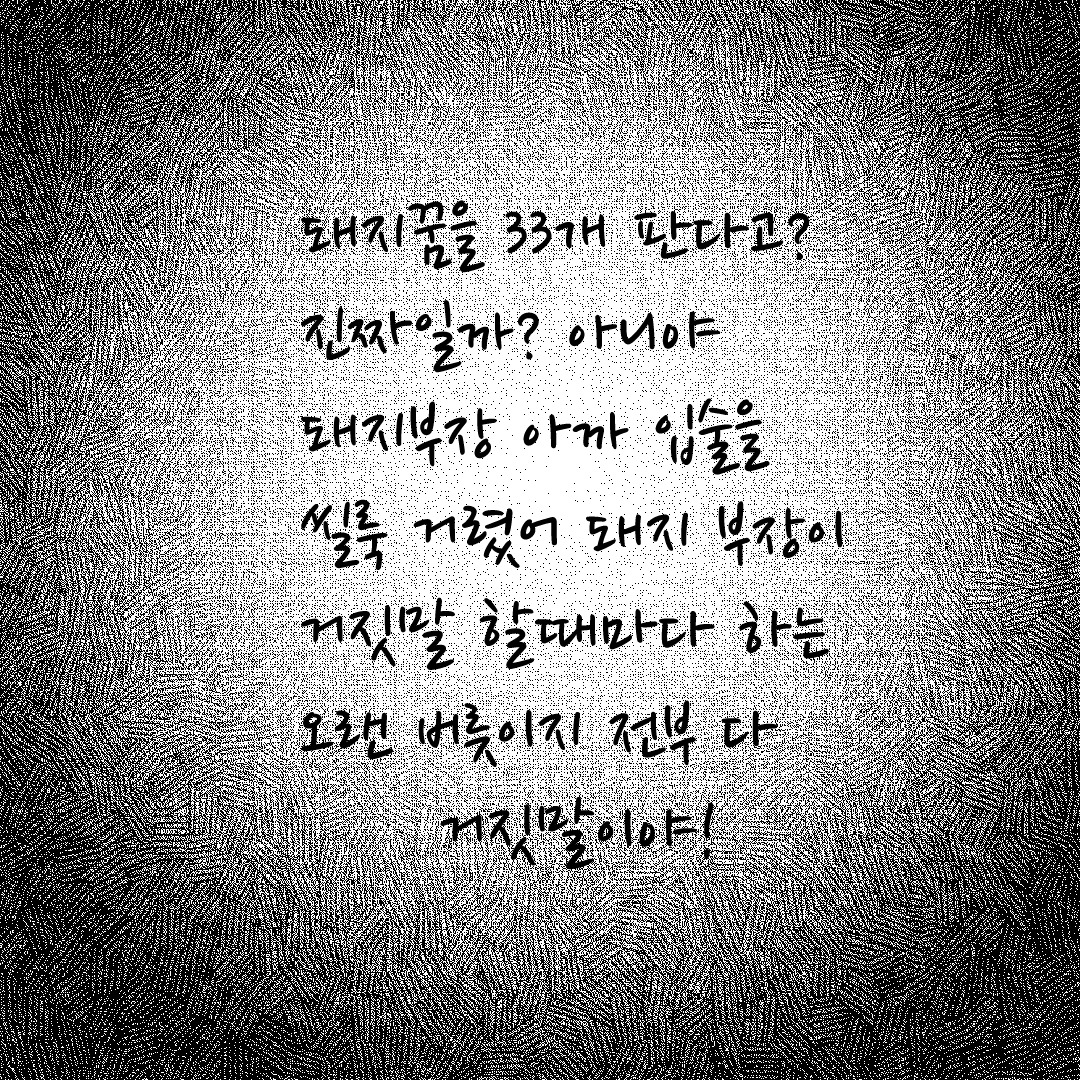 돼지꿈을 33개 판다고?
진짜일까? 아니야
돼지부장 아까 입술을
씰룩 거렸어 돼지 부장이
거짓말 할때마다 하는
오랜 버릇이지 전부 다
거짓말이야!